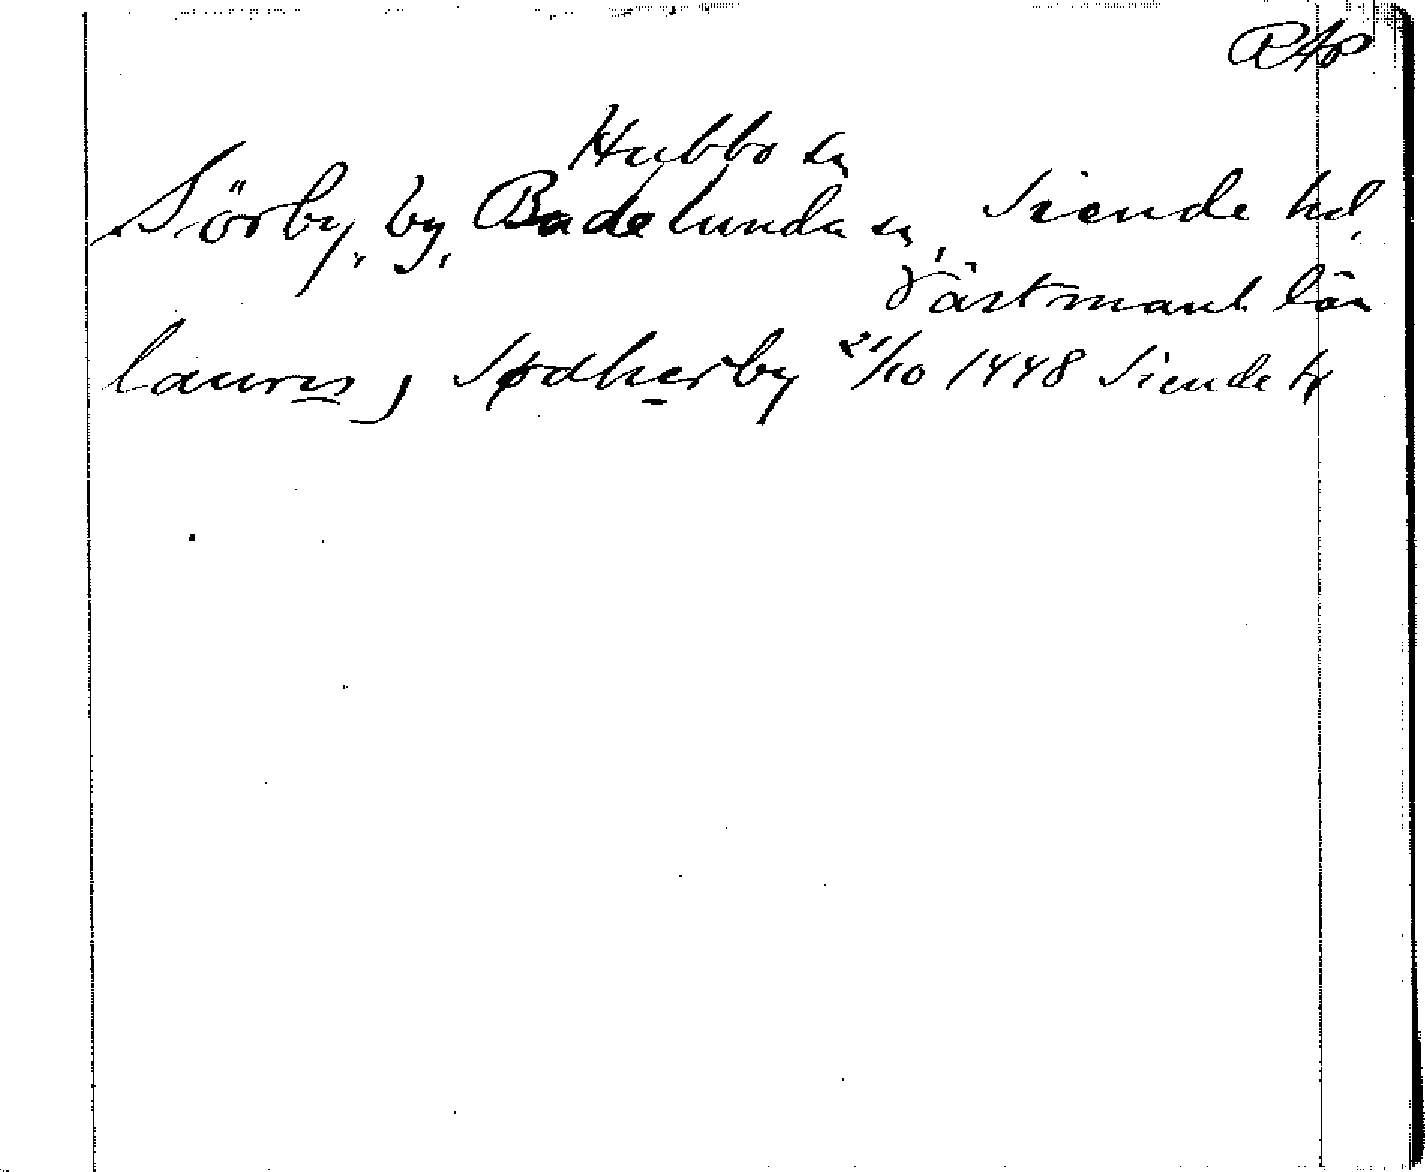 RAp
Hubbo sn
Sörby, by, Badelunda sn, Siende hd,
Västmanl. län
laurens j Sødherby 21/10 1448 Siende hd